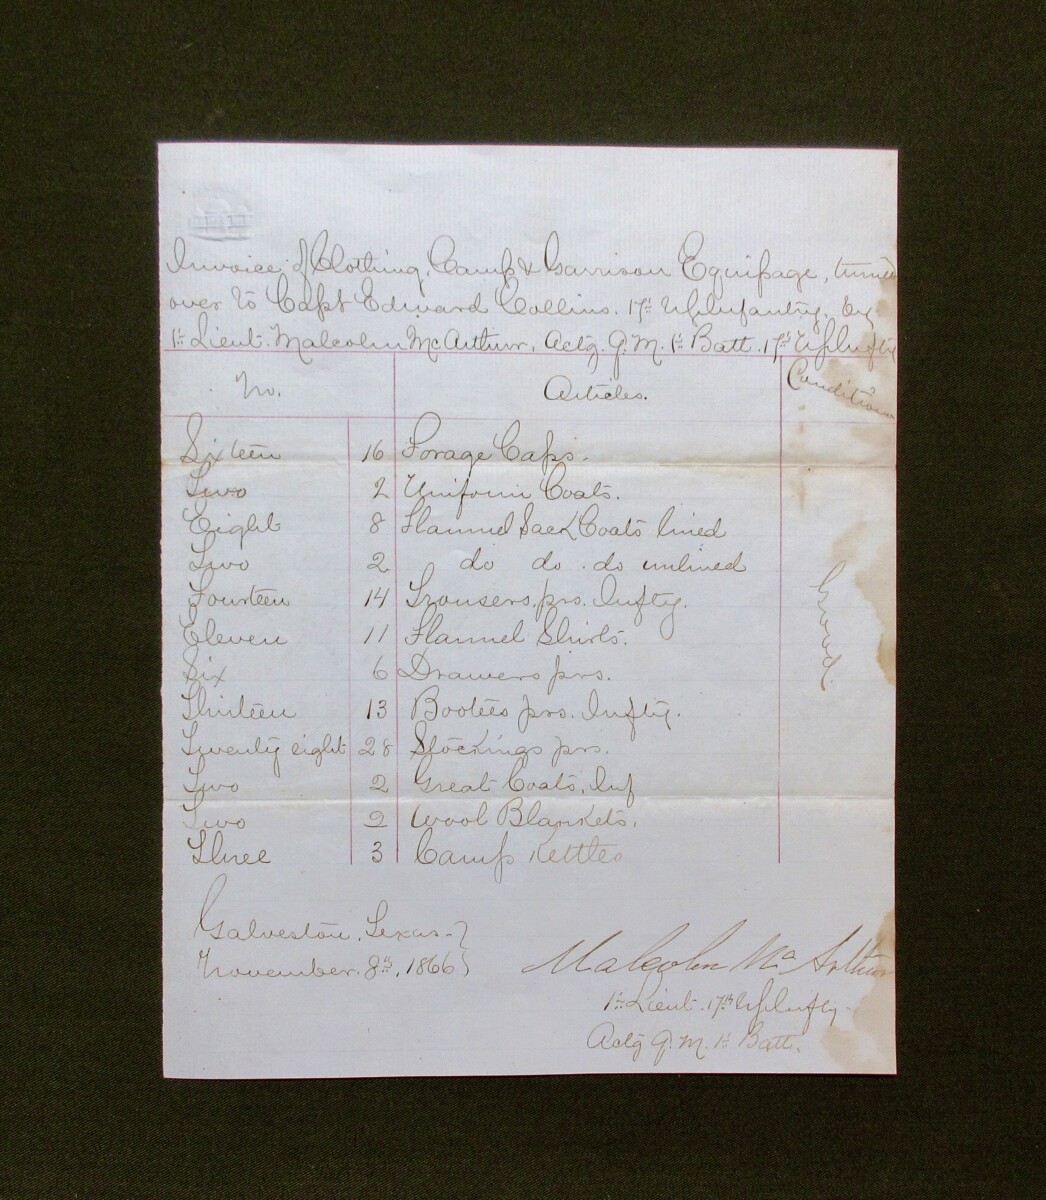 Invoice of Clothing, Camp & Garrison Equipage, turned
over to Capt Edward Collins. 17th US Infantry. by
1st Lieut. Malcolm McArthur, Actg. Q. M. 1st Batt. 17th US Infty
No. Articles. Condition
Sixteen 16 Forage Caps.
Two 2 Uniform Coats.
Eight 8 Flannel Sack Coats lined
Two 2 do do do unlined
Fourteen 14 Trousers, prs. Infty.
Eleven 11 Flannel Shirts.
Six 6 Drawers prs.
Thirteen 13 Bootees prs. Infty.
Twenty eight 28 Stockings prs.
Two 2 Great Coats, Inf
Two 2 Wool Blankets.
Three 3 Camp Kettles
Good.
Galveston, Texas
November. 8th, 1866
Malcolm McArthur
1st Lieut. 17th US Infty
Actg Q. M. 1st Batt.